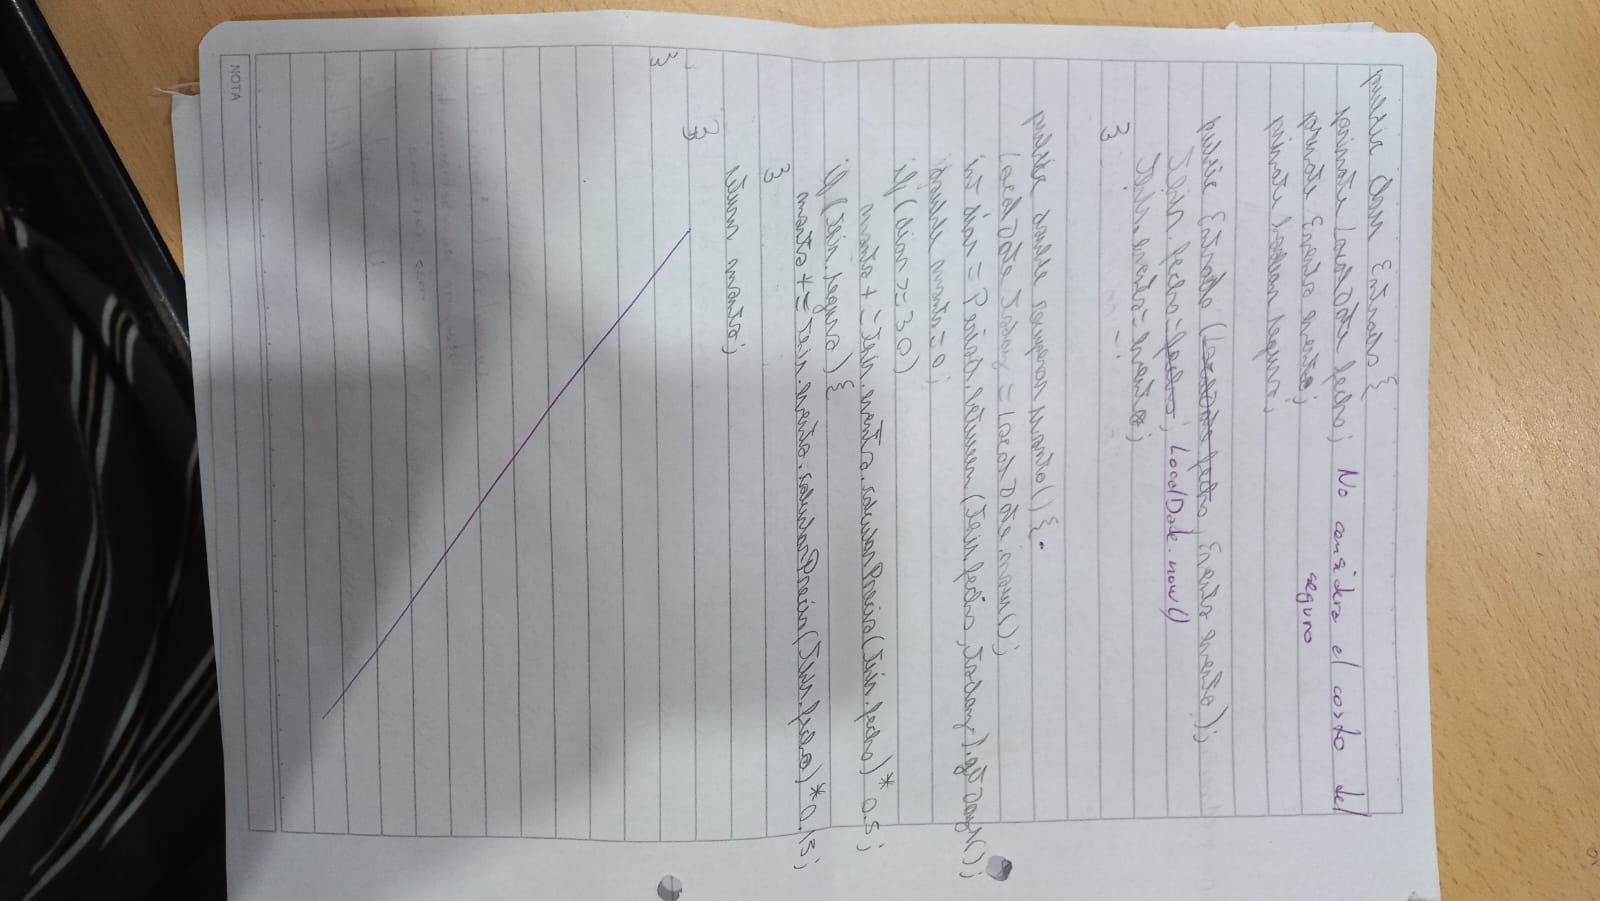 public class Entrada {
private LocalDate fecha; No considera el costo del
seguro
private Evento evento;
private boolean seguro;
public Entrada (LocalDate fecha, Evento evento);
this.fecha=fecha; LocalDate.now()
this.evento=evento;
}
public double recuperarMonto() {
LocalDate today = LocalDate.now();
int dias = Period.between(this.fecha, today).getDays();
double monto=0;
if(dias>=30)
monto+=this.evento.calcularPrecio(this.fecha)*0.5;
if(this.seguro) {
monto+=this.evento.calcularPrecio(this.fecha)*0.15;
}
return monto;
}
}
NOTA